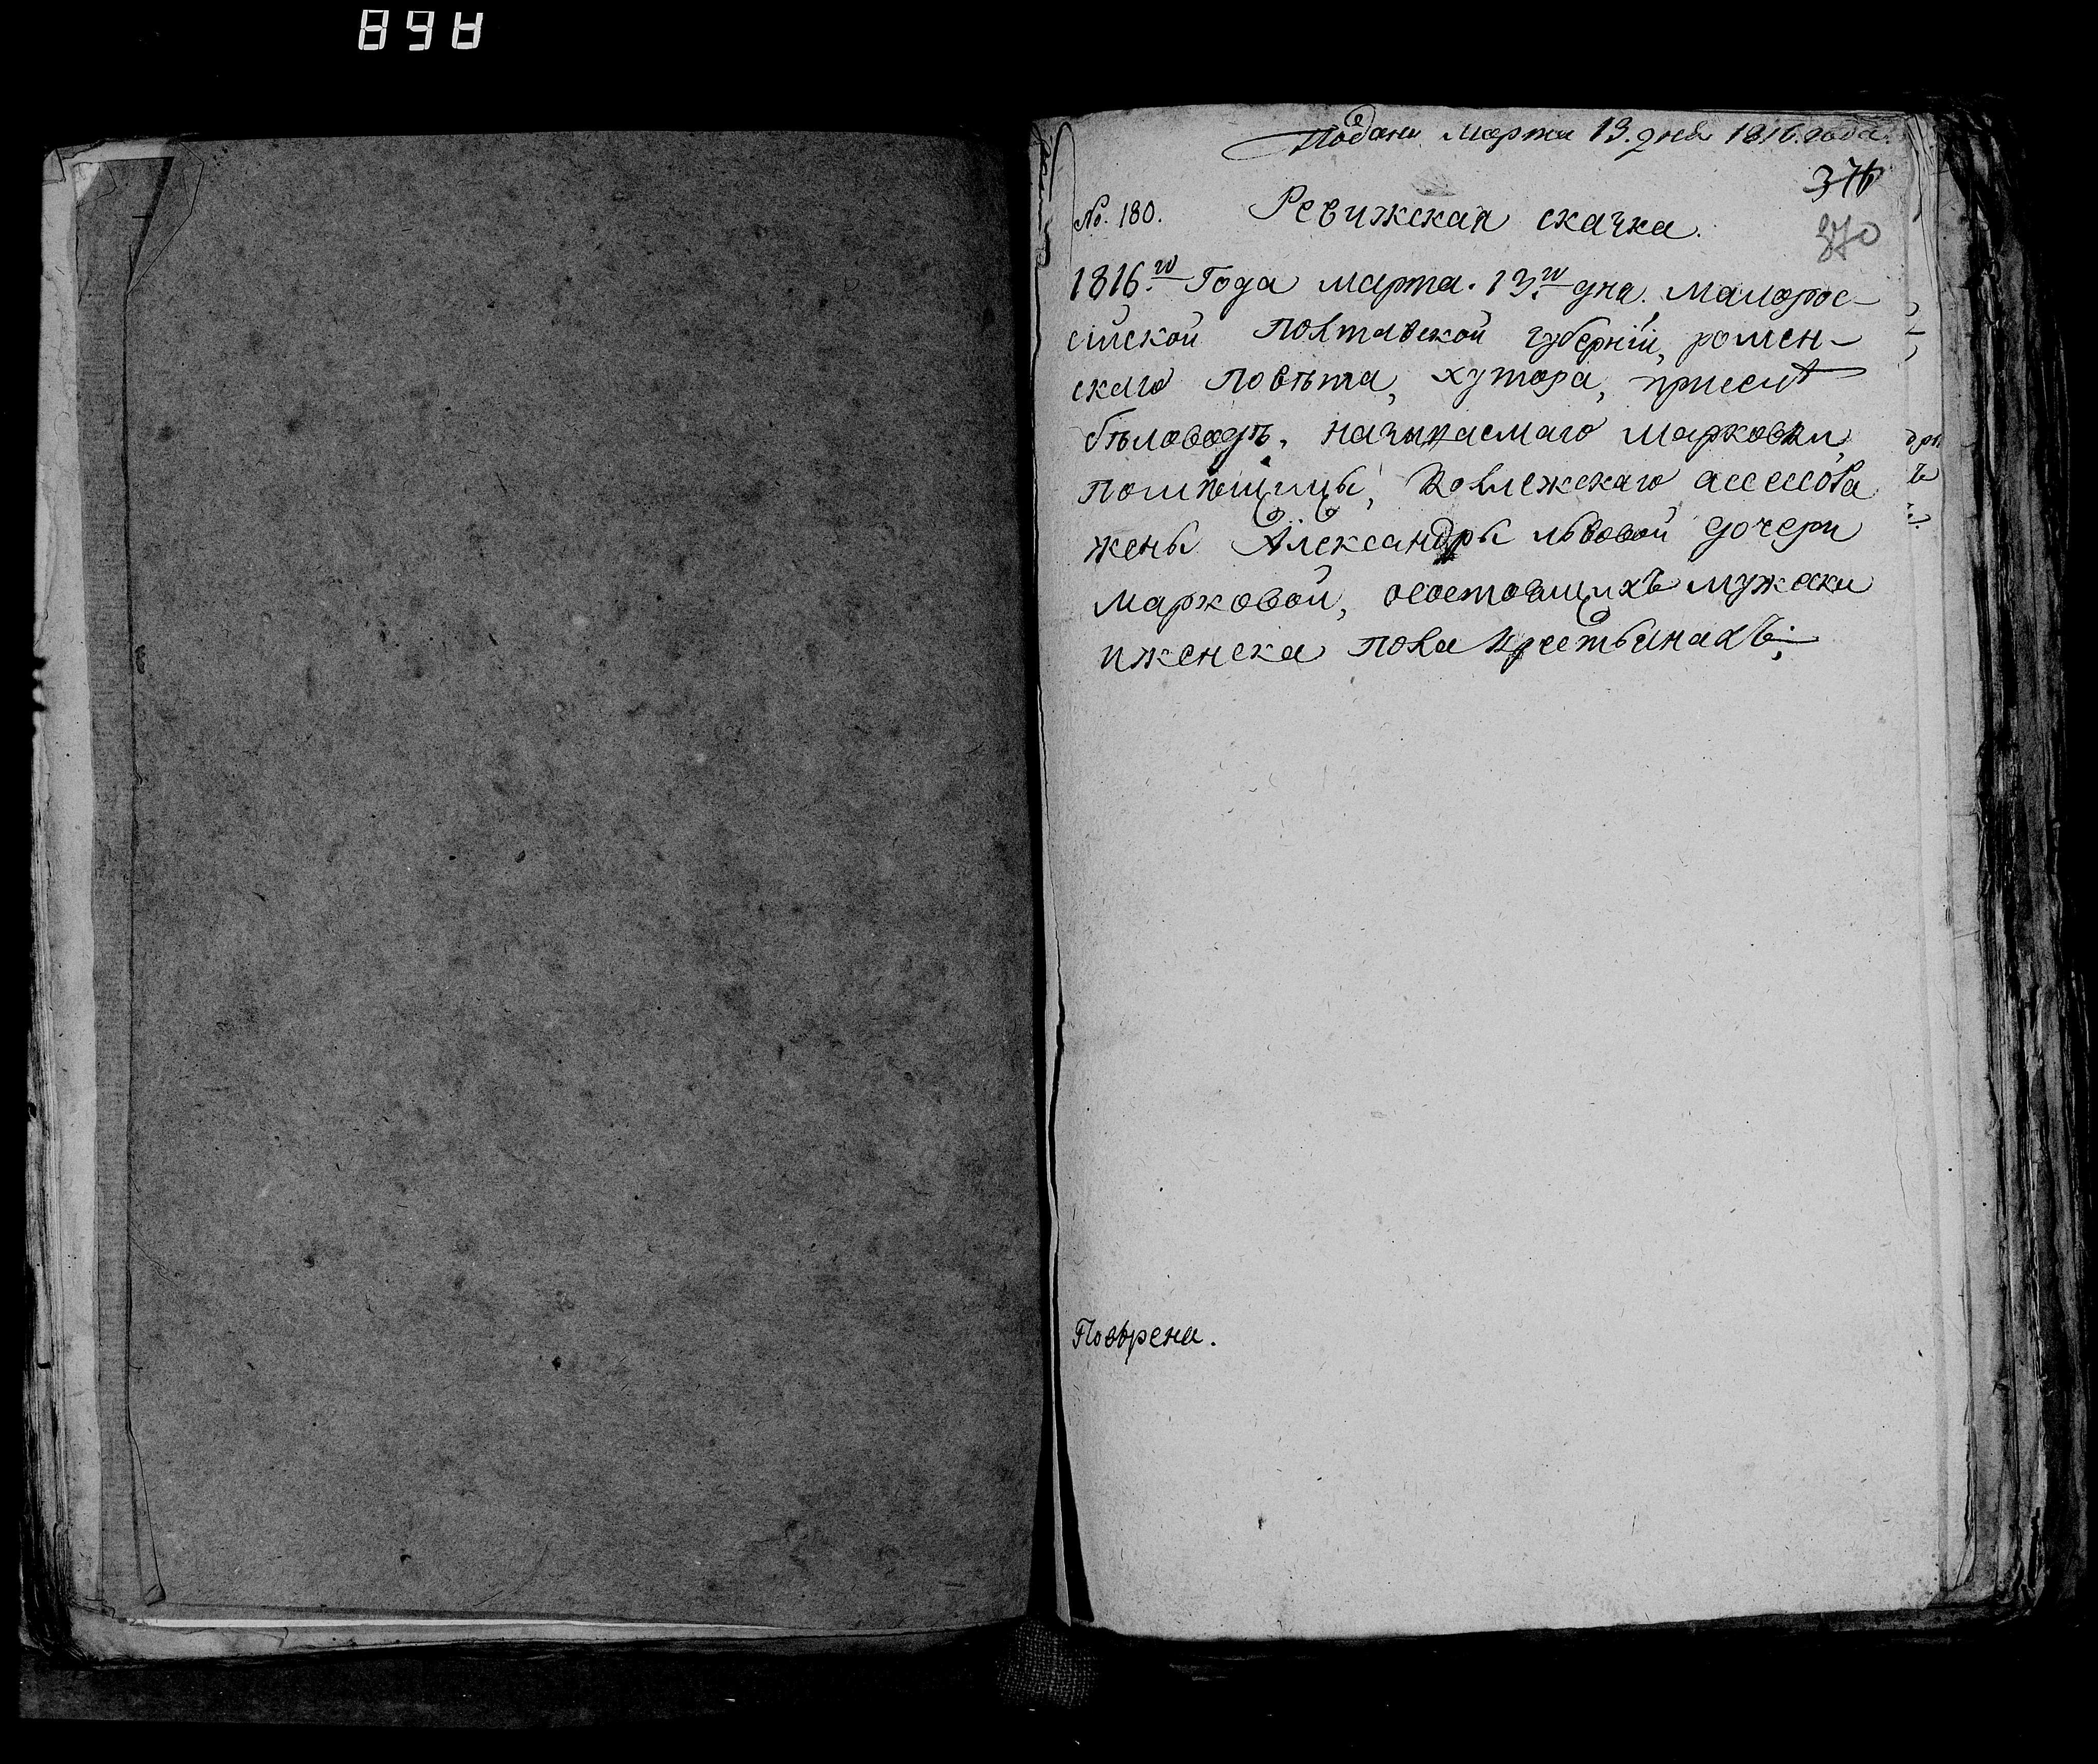 858
Подана марта 13. дня 1816. года.
376
370
№. 180.
Ревижская скачка.
1816.го Года марта. 13.го дня. малорос-
сийской полтавской губерніи, ромен-
скаго повѣта, хутора, приселѣ
бѣловодѣ, называемаго марковки,
помѣщицы, коллежскаго ассесора
жены Александры львовой дочери
марковой, осостоящихъ мужеска
иженска пола крестьянахъ;
Повѣрена.